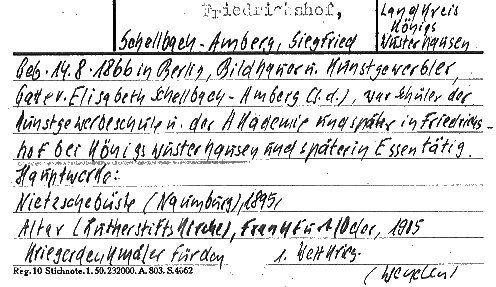 Friedrichshof,
Landkreis
Königs
Wusterhausen
Schellbach-Amberg, Siegfried
Geb. 14.8.1866 in Berlin, Bildhauer u. Kunstgewerbler,
Gatte v. Elisabeth Schellbach-Amberg (s.d.), war Schüler der
Kunstgewerbeschule u. der Akademie und später in Friedrichs-
hof bei Königswusterhausen und später in Essen tätig.
Hauptwerke:
Nietzschebüste (Naumburg), 1895,
Altar (Lutherstiftskirche), Frankfurt/Oder, 1905
Kriegerdenkmäler für den 1. Weltkrieg.
Reg. 10 Stichnote. 1. 50. 232000. A. 803. S. 4662